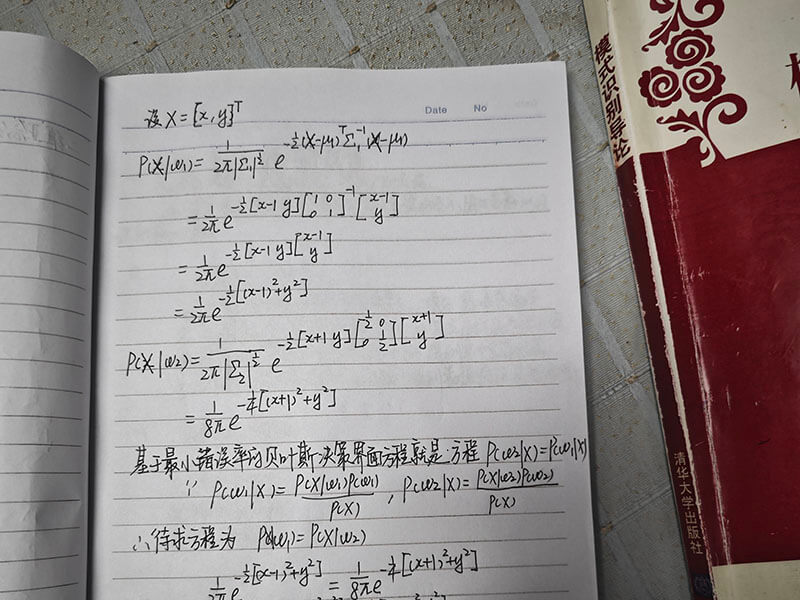 Date No
设X=[x,y]^T
P(X|ω₁)= 1/(2π|Σ₁|^(1/2)) e^(-1/2(X-μ₁)^T Σ₁^(-1)(X-μ₁))
= 1/(2π) e^(-1/2[x-1 y][1 0; 0 1]^(-1)[x-1; y])
= 1/(2π) e^(-1/2[x-1 y][x-1; y])
= 1/(2π) e^(-1/2[(x-1)²+y²])
P(X|ω₂)= 1/(2π|Σ₂|^(1/2)) e^(-1/2[x+1 y][1/2 0; 0 1/2][x+1; y])
= 1/(8π) e^(-1/4[(x+1)²+y²])
基于最小错误率的贝叶斯决策界面方程就是方程 P(ω₂|X)=P(ω₁|X)
∵ P(ω₁|X)= P(X|ω₁)P(ω₁)/P(X) , P(ω₂|X)= P(X|ω₂)P(ω₂)/P(X)
∴待求方程为 P(X|ω₁)=P(X|ω₂)
1/(2π) e^(-1/2[(x-1)²+y²]) = 1/(8π) e^(-1/4[(x+1)²+y²])
模式识别导论
清华大学出版社